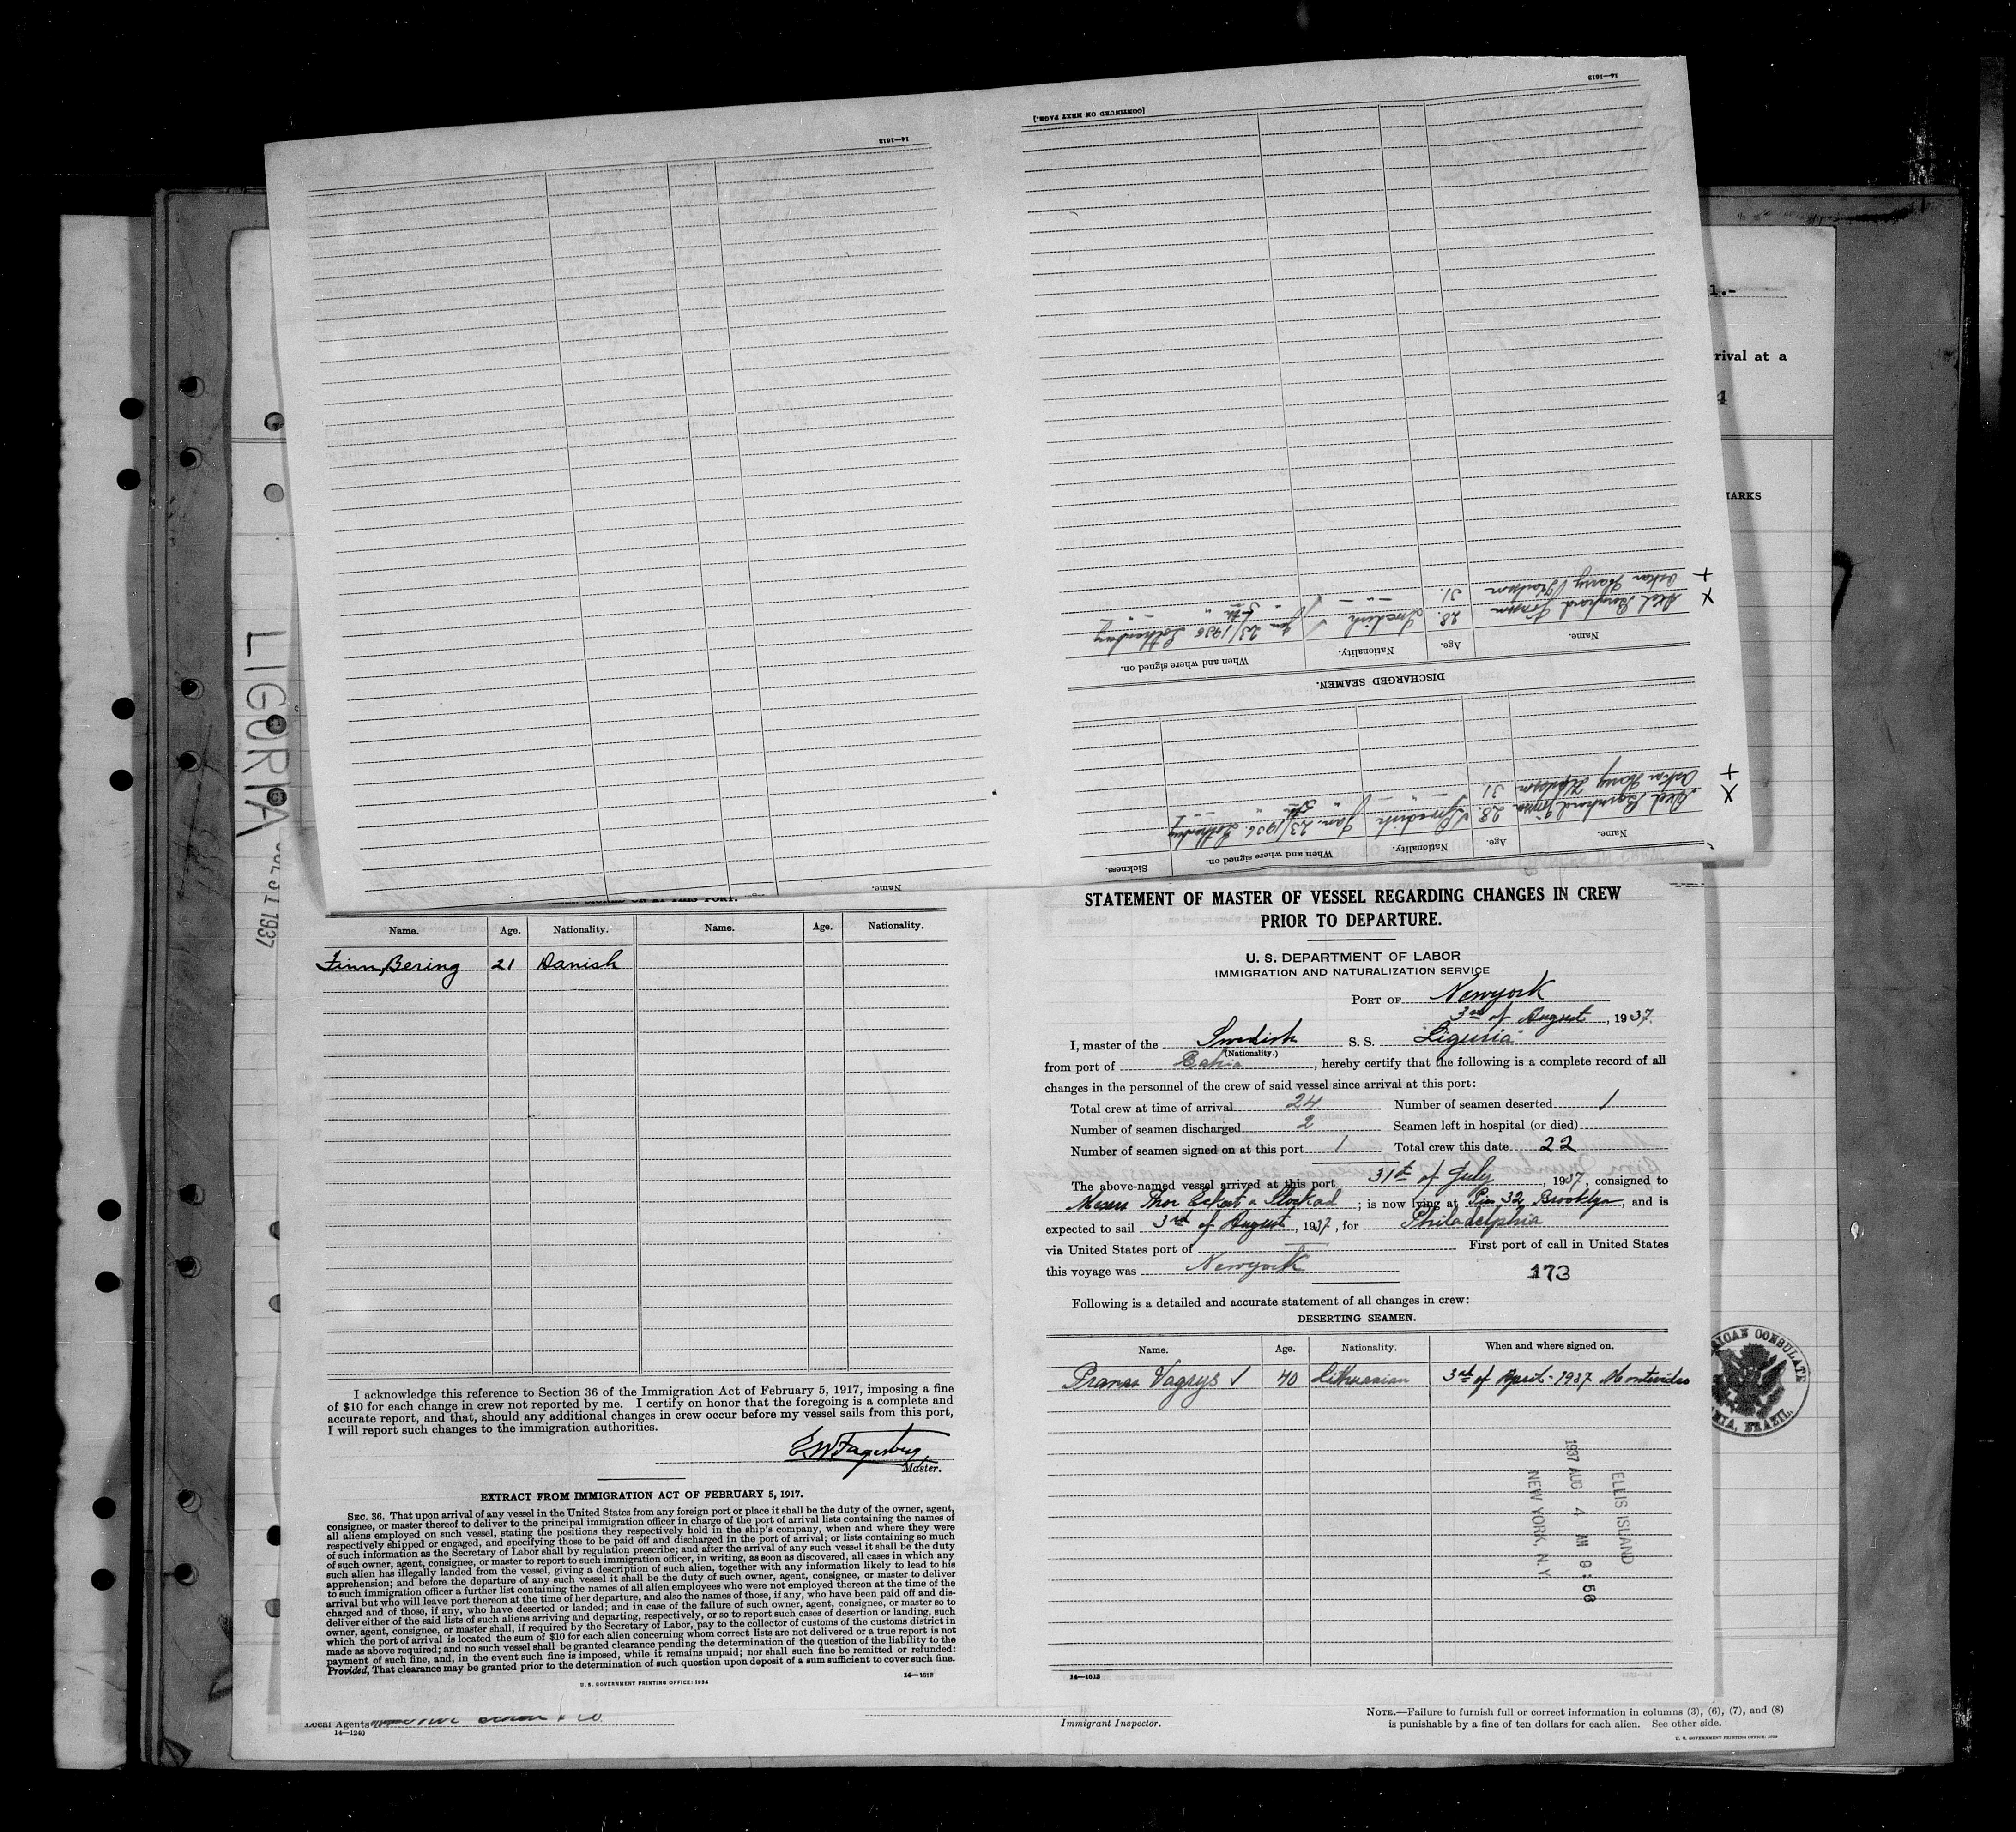 14—1613
[CONTINUED ON NEXT PAGE.]
14—1613
1.-
rival at a
4
MARKS
X
Name.
Age.
Nationality.
When and where signed on.
Axel Bernhard 28. Swedish Jan 23/1936 Gothenburg
Oskar Harry 31. — " — " 5th "
DISCHARGED SEAMEN.
X
Name.
Age.
Nationality.
When and where signed on.
Sickness.
Axel Bernhard 28. Swedish Jan. 23/1936. Gothenburg
Oskar Harry 31 — " — " 5th "
Name.
LIGURIA
JUL 31 1937
SIGNED ON AT THIS PORT.
Name. Age. Nationality. Name. Age. Nationality.
Finn Bering 21 Danish
I acknowledge this reference to Section 36 of the Immigration Act of February 5, 1917, imposing a fine
of $10 for each change in crew not reported by me. I certify on honor that the foregoing is a complete and
accurate report, and that, should any additional changes in crew occur before my vessel sails from this port,
I will report such changes to the immigration authorities.
E.W. Fagerberg,
Master.
EXTRACT FROM IMMIGRATION ACT OF FEBRUARY 5, 1917.
SEC. 36. That upon arrival of any vessel in the United States from any foreign port or place it shall be the duty of the owner, agent,
consignee, or master thereof to deliver to the principal immigration officer in charge of the port of arrival lists containing the names of
all aliens employed on such vessel, stating the positions they respectively hold in the ship's company, when and where they were
respectively shipped or engaged, and specifying those to be paid off and discharged in the port of arrival; or lists containing so much
of such information as the Secretary of Labor shall by regulation prescribe; and after the arrival of any such vessel it shall be the duty
of such owner, agent, consignee, or master to report to such immigration officer, in writing, as soon as discovered, all cases in which any
such alien has illegally landed from the vessel, giving a description of such alien, together with any information likely to lead to his
apprehension; and before the departure of any such vessel it shall be the duty of such owner, agent, consignee, or master to deliver
to such immigration officer a further list containing the names of all alien employees who were not employed thereon at the time of the
arrival but who will leave port thereon at the time of her departure, and also the names of those, if any, who have been paid off and dis-
charged and of those, if any, who have deserted or landed; and in case of the failure of such owner, agent, consignee, or master so to
deliver either of the said lists of such aliens arriving and departing, respectively, or so to report such cases of desertion or landing, such
owner, agent, consignee, or master shall, if required by the Secretary of Labor, pay to the collector of customs of the customs district in
which the port of arrival is located the sum of $10 for each alien concerning whom correct lists are not delivered or a true report is not
made as above required; and no such vessel shall be granted clearance pending the determination of the question of the liability to the
payment of such fine, and, in the event such fine is imposed, while it remains unpaid; nor shall such fine be remitted or refunded:
Provided, That clearance may be granted prior to the determination of such question upon deposit of a sum sufficient to cover such fine.
14—1613
U. S. GOVERNMENT PRINTING OFFICE: 1934
STATEMENT OF MASTER OF VESSEL REGARDING CHANGES IN CREW
PRIOR TO DEPARTURE.
U. S. DEPARTMENT OF LABOR
IMMIGRATION AND NATURALIZATION SERVICE
PORT OF Newyork
3rd of August, 1937.
I, master of the Swedish S. S. Liguria
(Nationality.)
from port of Bahia, hereby certify that the following is a complete record of all
changes in the personnel of the crew of said vessel since arrival at this port:
Total crew at time of arrival 24 Number of seamen deserted 1
Number of seamen discharged 2 Seamen left in hospital (or died)
Number of seamen signed on at this port 1 Total crew this date 22
The above-named vessel arrived at this port 31st of July, 1937, consigned to
Messrs Thor Eckert & Stockad; is now lying at Pier 32 Brooklyn, and is
expected to sail 3rd of August, 1937, for Philadelphia
via United States port of — First port of call in United States
this voyage was Newyork
173
Following is a detailed and accurate statement of all changes in crew:
DESERTING SEAMEN.
Name. Age. Nationality. When and where signed on.
Pranas Vagrys ✓ 40 Lithuanian 3rd of April - 1937 Montevideo
ELLIS ISLAND
1937 AUG 4 AM 9:58
NEW YORK, N.Y.
14—1613
RICAN CONSULATE
HIA, BRAZIL.
Local Agents
14—1240
Immigrant Inspector.
NOTE.—Failure to furnish full or correct information in columns (3), (6), (7), and (8)
is punishable by a fine of ten dollars for each alien. See other side.
U. S. GOVERNMENT PRINTING OFFICE: 1929